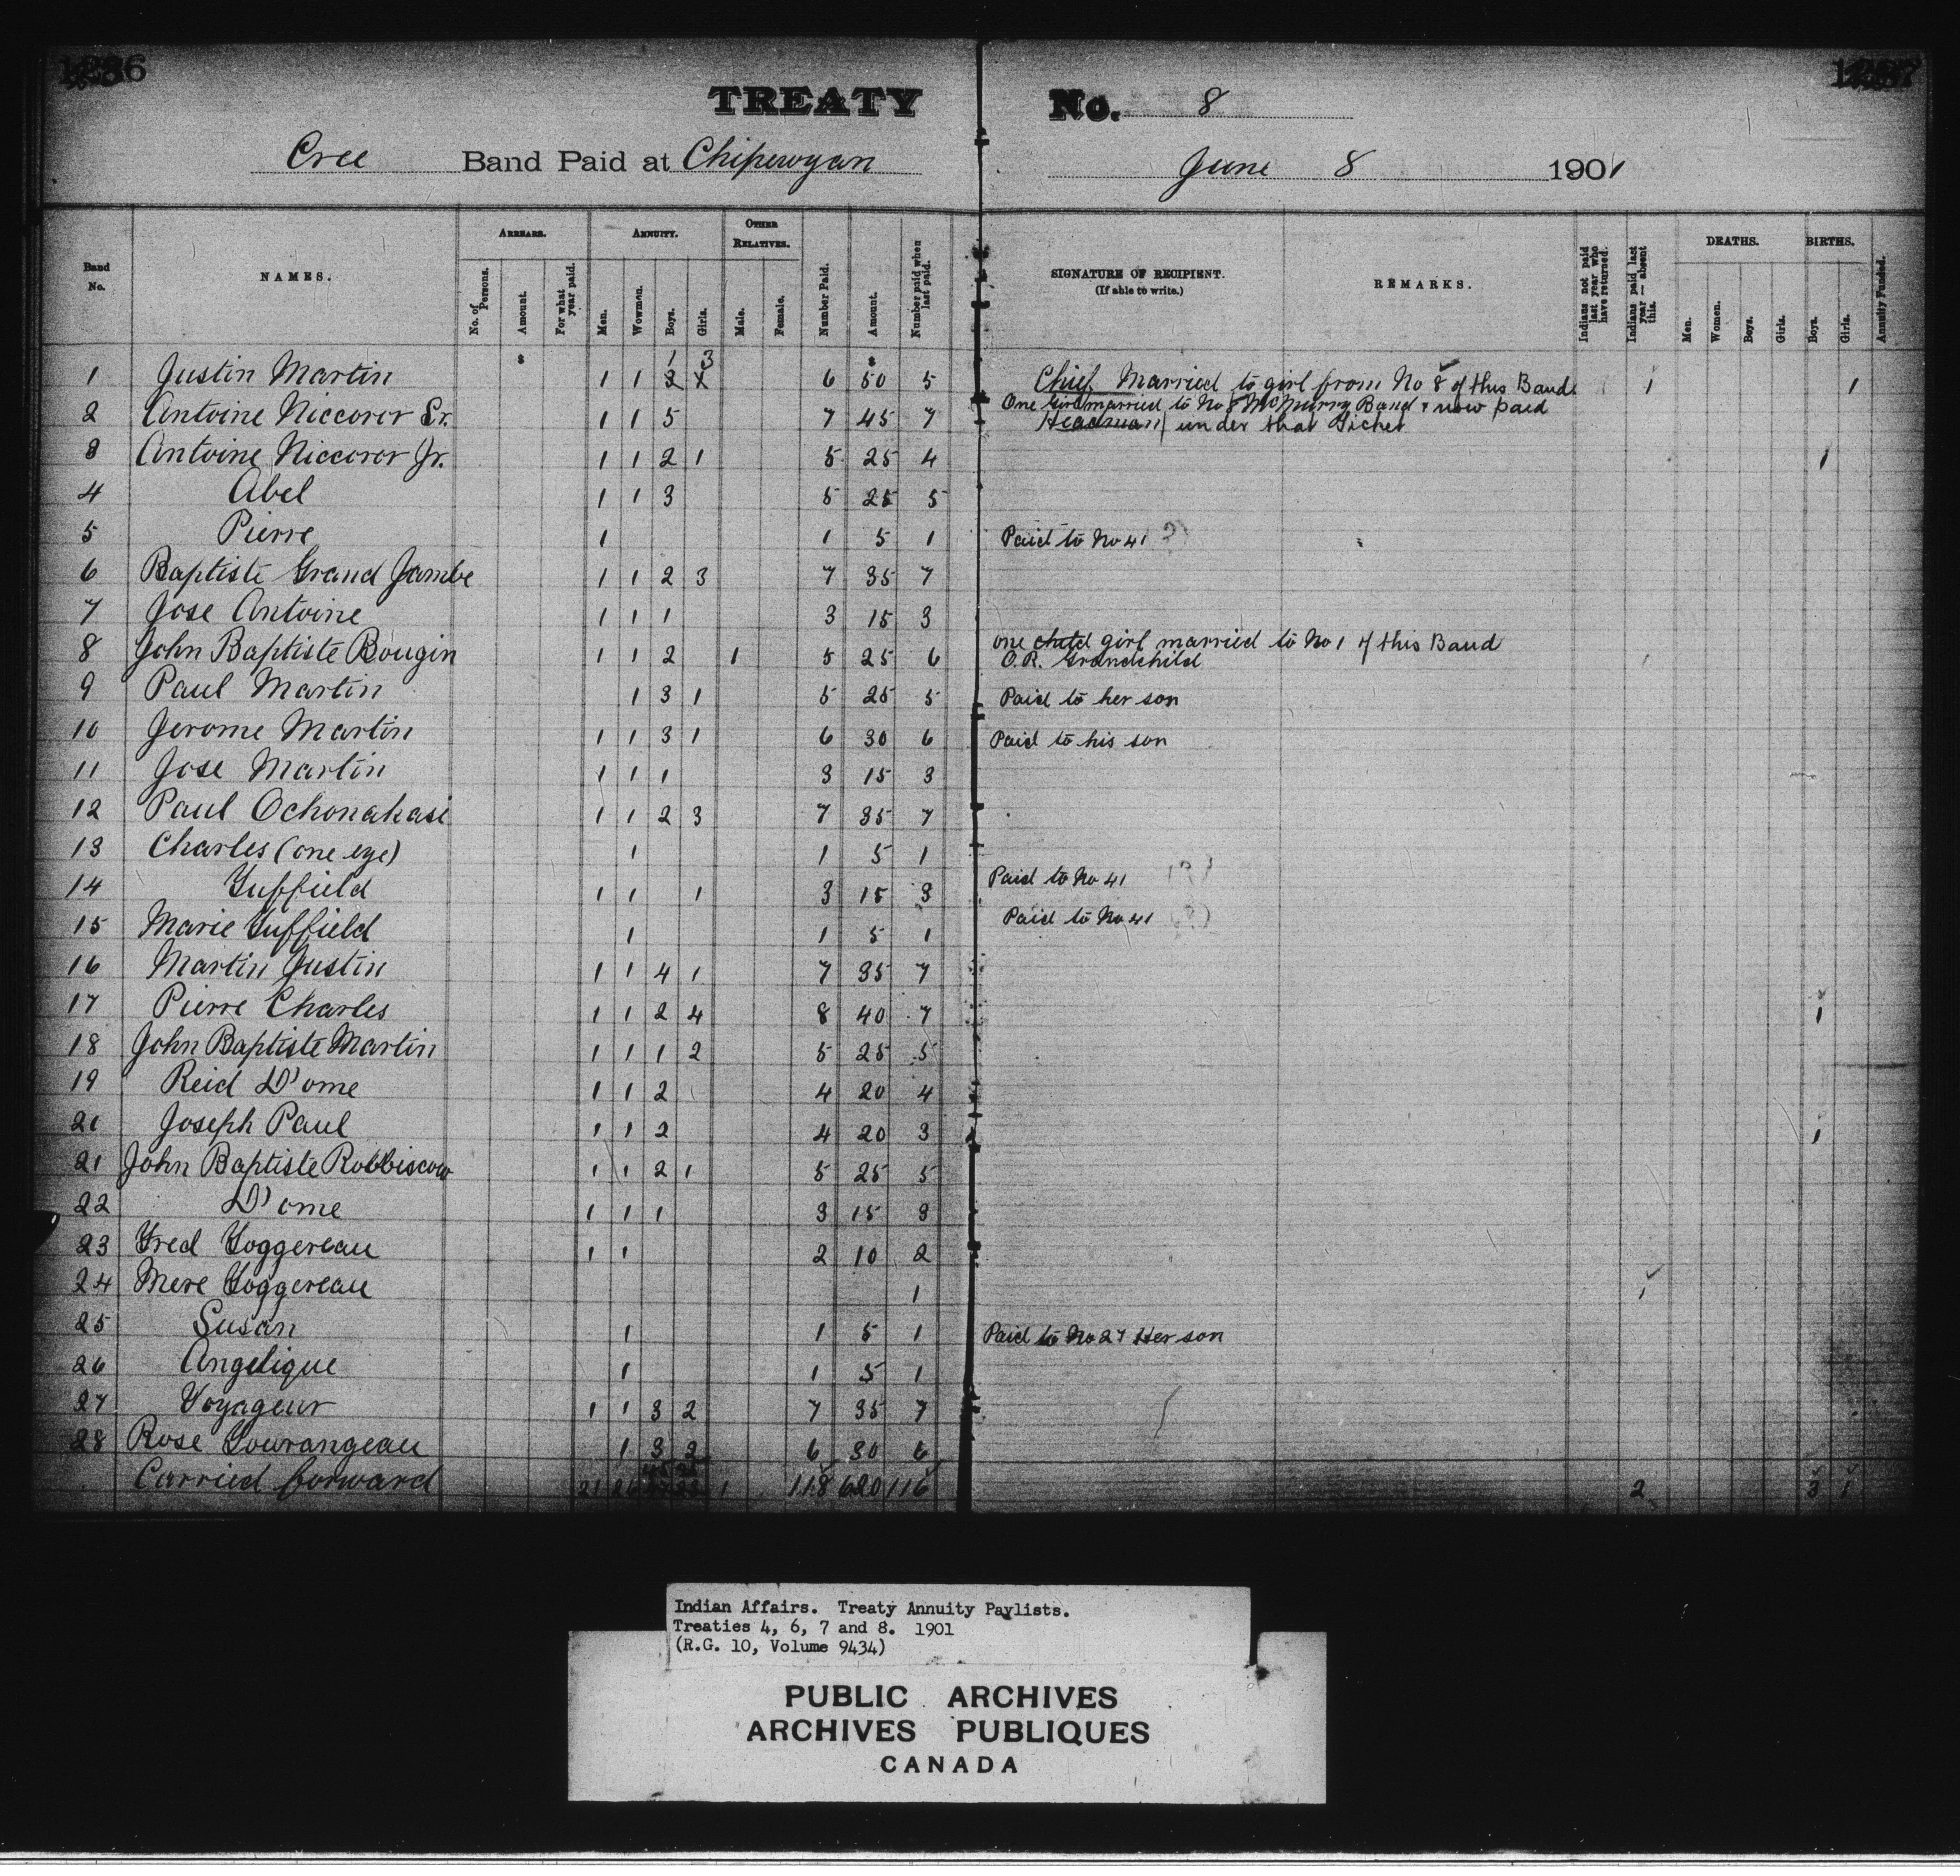 TREATY No. 8
Cree Band Paid at Chipewyan June 8 1901
Band No. NAMES. ARREARS. ANNUITY. OTHER RELATIVES. Number Paid. Amount. Number paid when last paid. SIGNATURE OF RECIPIENT. (If able to write.) REMARKS. Indians not paid last year who have returned. Indians paid last year — absent this. DEATHS. BIRTHS. Annuity Funded.
No. of Persons. Amount. For what year paid. Men. Women. Boys. Girls. Male. Female. Men. Women. Boys. Girls. Boys. Girls.
$ 1 3 $
1 Justin Martin 1 1 2 6 50 5 Chief Married to girl from No 8 of this Band 1 1
2 Antoine Niccoror Sr. 1 1 5 7 45 7 One Girl married to No 8 McMurry Band & now paid
Headman under that Ticket
3 Antoine Niccoror Jr. 1 1 2 1 5 25 4 1
4 Abel 1 1 3 5 25 5
5 Pierre 1 1 5 1 Paid to No 41
6 Baptiste Grand Jambe 1 1 2 3 7 35 7
7 Jose Antoine 1 1 1 3 15 3
8 John Baptiste Bougin 1 1 2 1 5 25 6 one child girl married to No 1 of this Band
O.R. Grandchild
9 Paul Martin 1 3 1 5 25 5 Paid to her son
10 Jerome Martin 1 1 3 1 6 30 6 Paid to his son
11 Jose Martin 1 1 1 3 15 3
12 Paul Ochonakasi 1 1 2 3 7 35 7
13 Charles (one eye) 1 1 5 1
14 Tuffield 1 1 1 3 15 3 Paid to No 41
15 Marie Tuffield 1 1 5 1 Paid to No 41
16 Martin Justin 1 1 4 1 7 35 7
17 Pierre Charles 1 1 2 4 8 40 7 1
18 John Baptiste Martin 1 1 1 2 5 25 5
19 Reid D'ome 1 1 2 4 20 4
20 Joseph Paul 1 1 2 4 20 3 1
21 John Baptiste Robbiscow 1 1 2 1 5 25 5
22 D'ome 1 1 1 3 15 3
23 Fred Toggereau 1 1 2 10 2
24 Mere Toggereau 1 1
25 Susan 1 1 5 1 Paid to No 27 Her son
26 Angelique 1 1 5 1
27 Voyageur 1 1 3 2 7 35 7
28 Rose Tourangeau 1 3 2 6 30 6
Carried forward 21 1 118 620 116 2 3 1
Indian Affairs. Treaty Annuity Paylists.
Treaties 4, 6, 7 and 8. 1901
(R.G. 10, Volume 9434)
PUBLIC ARCHIVES
ARCHIVES PUBLIQUES
CANADA